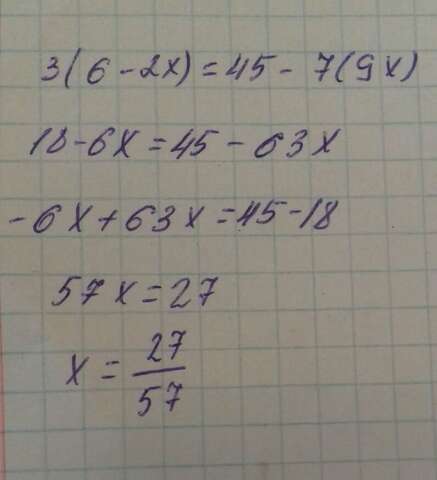 3(6-2x)=45-7(9x)
18-6x=45-63x
-6x+63x=45-18
57x=27
x=27/57